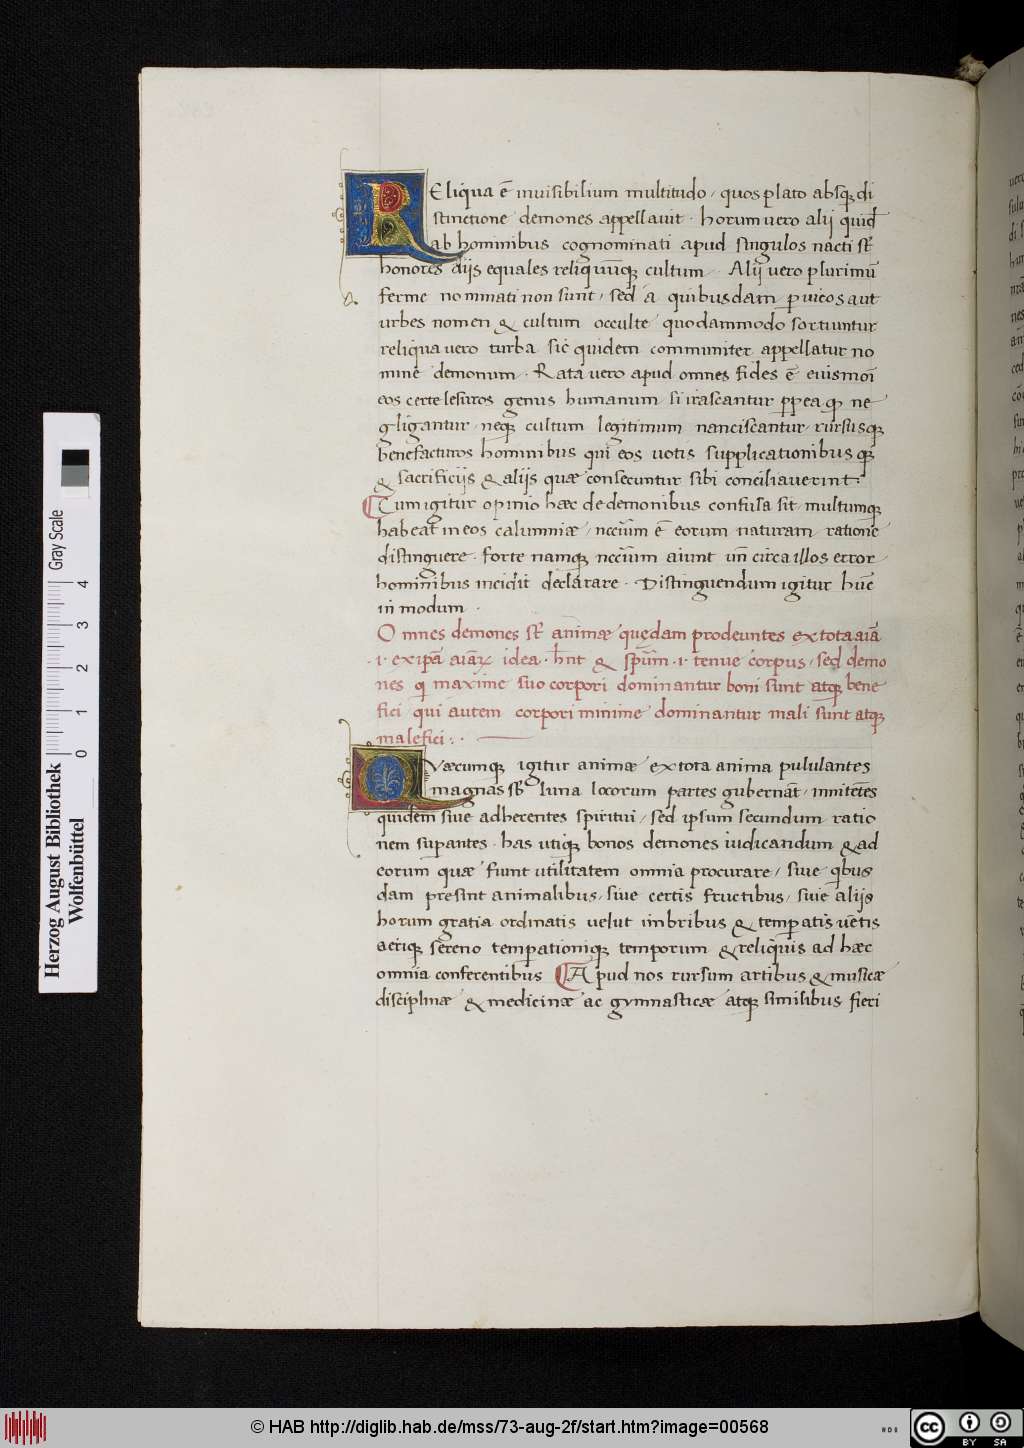 Reliqua ē inuisibilium multitudo, quos plato absq; di
stinctione demones appellauit · horum vero alij quid̄
ab hominibus cognominati apud singulos nacti st̄
honores diis equales reliquūq; cultum · Alij vero plurimū
ferme nominati non sunt, sed a quibusdam p uicos aut
urbes nomen & cultum occulte quodammodo sortiuntur
reliqua vero turba sic quidem communiter appellatur no
mine demonum · Rata vero apud omnes fides ē eiusmōi
eos certe lesuros genus humanum si irascantur ppea qp ne
gligantur, neq; cultum legitimum nanciscantur, rursusq;
benefacturos hominibus qui eos uotis supplicationibusq;
& sacrificijs & alijs quæ consecuntur sibi conciliauerint:
Cum igitur opinio hæc de demonibus confusa sit multumq;
habeat in eos calumniæ, nccium ē eorum naturam ratione
distinguere · forte namq; nccium aiunt un̄ circa illos error
hominibus inciderit declarare · Distinguendum igitur hūc
in modum ·
Omnes demones st̄ animæ quędam prodeuntes ex tota aiā
·i· ex ipā aiāꝝ idea · hn̄t & spūm ·i· tenue corpus, sed demo
nes qi maxime suo corpori dominantur boni sunt atq; bene
fici qui autem corpori minime dominantur mali sunt atq;
malefici : ·
Quæcumq; igitur animæ ex tota anima pululantes
magnas sb luna locorum partes gubernāt, innitētes
quidem siue adherentes spiritui, sed ipsum secundum ratio
nem supantes · has utiq; bonos demones iudicandum & ad
eorum quæ fiunt utilitatem omnia procurare, siue qbus
dam presint animalibus, siue certis fructibus, siue alijs
horum gratia ordinatis uelut imbribus & temperatis uētis
aeriq; sereno temperationiq; temporum & reliquis ad hæc
omnia conferentibus Apud nos rursum artibus & musicæ
disciplinæ & medicinæ ac gymnasticæ atq; similibus fieri
Herzog August Bibliothek
Wolfenbüttel
Gray Scale
0 1 2 3 4
© HAB http://diglib.hab.de/mss/73-aug-2f/start.htm?image=00568
cc BY SA